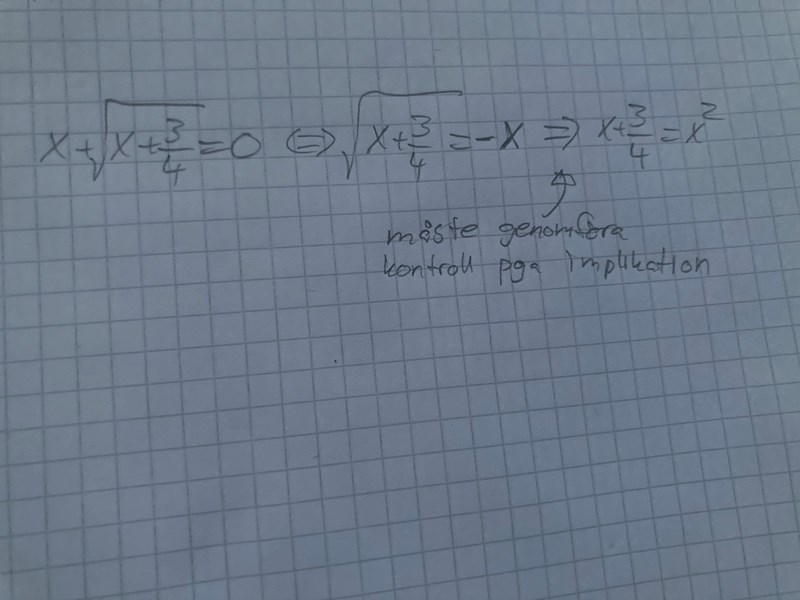 x+√(x+3/4)=0 ⇔ √(x+3/4)=-x ⇒ x+3/4=x²
måste genomföra
kontroll pga implikation